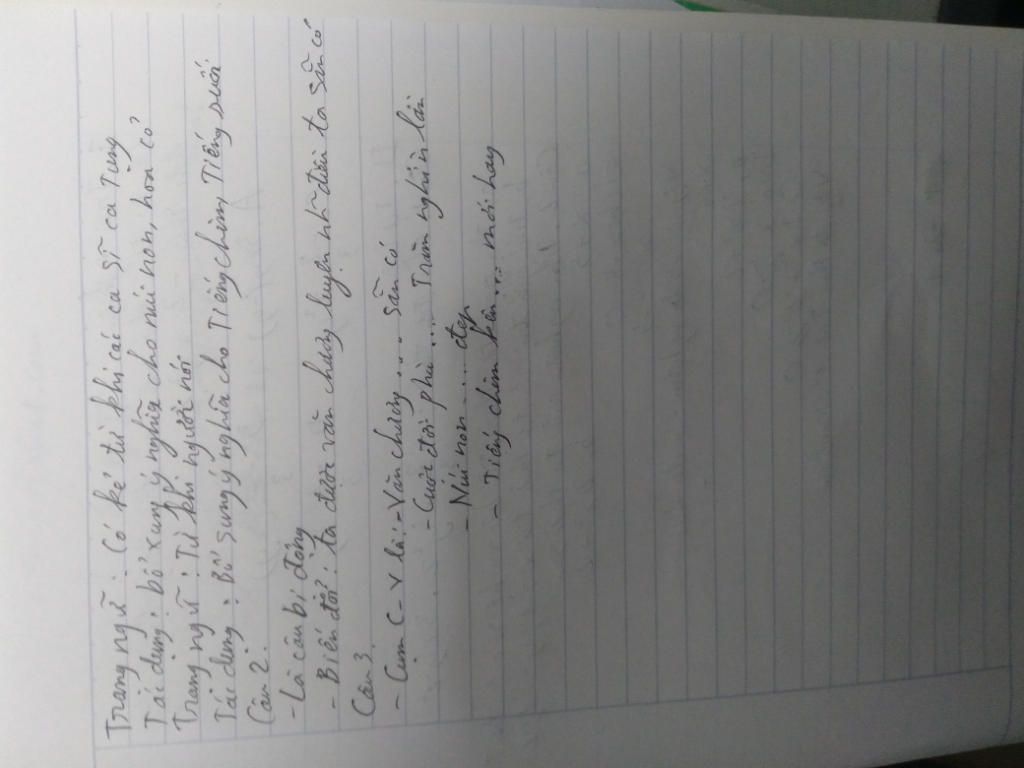 Trạng ngữ : Có kẻ từ khi các ca sĩ ca tụng
Tác dụng : bổ xung ý nghĩa cho núi non, hoa cỏ?
Trạng ngữ : Từ khi người nói
Tác dụng : Bổ sung ý nghĩa cho Tiếng chim, Tiếng suối
Câu 2.
- Là câu bị động
- Biến đổi : ta được văn chương luyện những điều ta sẵn có
Câu 3
- Cụm C-V là : - Văn chương .... sẵn có
- Cuộc đời phù ... Trăm nghìn lần
- Núi non .... đẹp
- Tiếng chim kêu ... mới hay